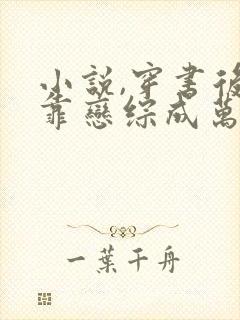 小說,穿書後
靠戀綜成萬
一葉千舟